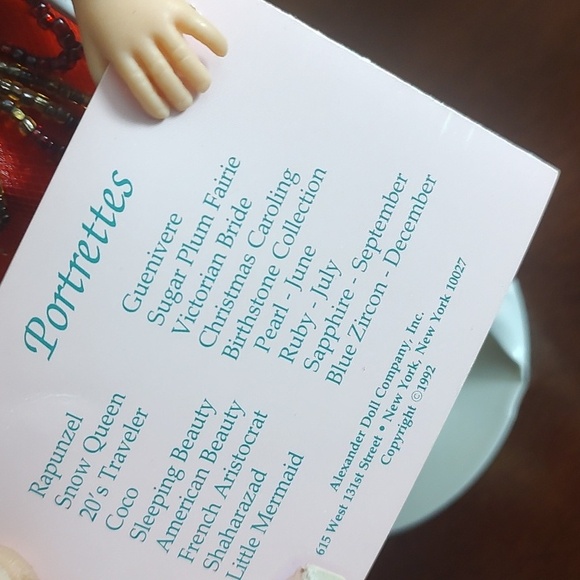 Portrettes
Rapunzel
Snow Queen
20's Traveler
Coco
Sleeping Beauty
American Beauty
French Aristocrat
Shaharazad
Little Mermaid
Guenivere
Sugar Plum Fairie
Victorian Bride
Christmas Caroling
Birthstone Collection
Pearl - June
Ruby - July
Sapphire - September
Blue Zircon - December
Alexander Doll Company, Inc.
615 West 131st Street • New York, New York 10027
Copyright ©1992